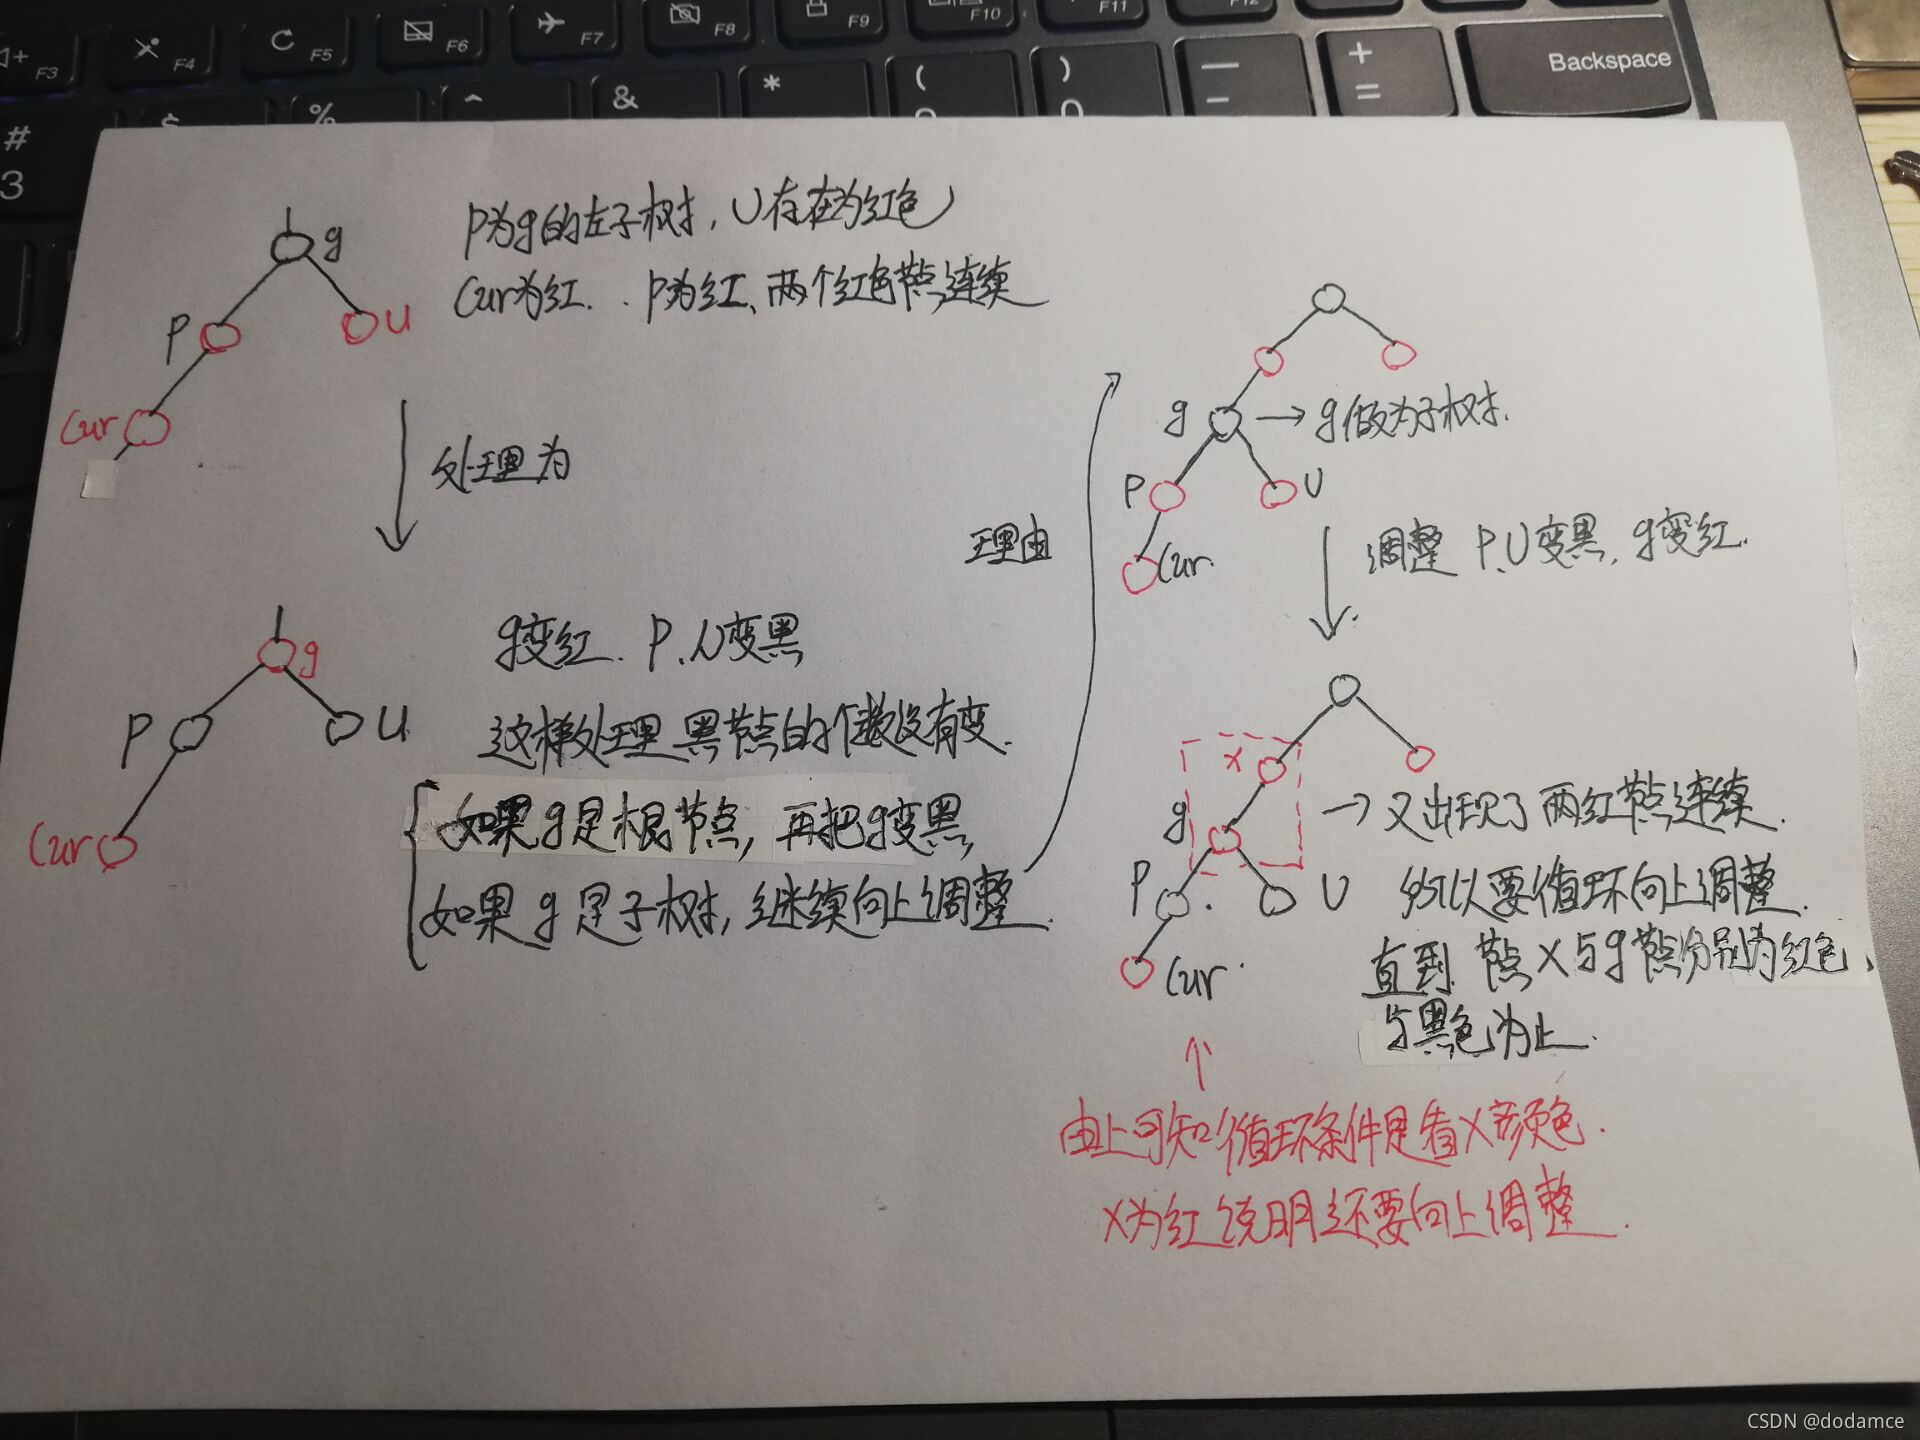 F3
F4
F5
F6
F7
F8
F9
F10
F11
F12
Backspace
#
3
$
%
^
&
*
(
)
—
-
+
=
g
P为g的左子树，U存在为红色
Cur为红．P为红、两个红色节点连续
P
U
Cur
处理为
g
g变红．P、U变黑
P
U
这样处理黑节点的个数没有变．
Cur
如果g是根节点，再把g变黑
如果g是子树，继续向上调整．
理由
g → g做为子树．
P
U
Cur.
调整 P、U变黑，g变红．
X
g
→ 又出现了两红节点连续．
P
U
所以要循环向上调整．
Cur
直到 节点X与g节点分别为红色、
与黑色为止．
由上可知循环条件是看X颜色．
X为红说明还要向上调整．
CSDN @dodamce